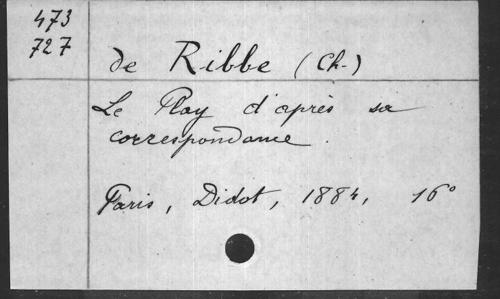 473
727
de Ribbe (Ch.)
Le Play d'après sa
correspondance.
Paris, Didot, 1884, 16°